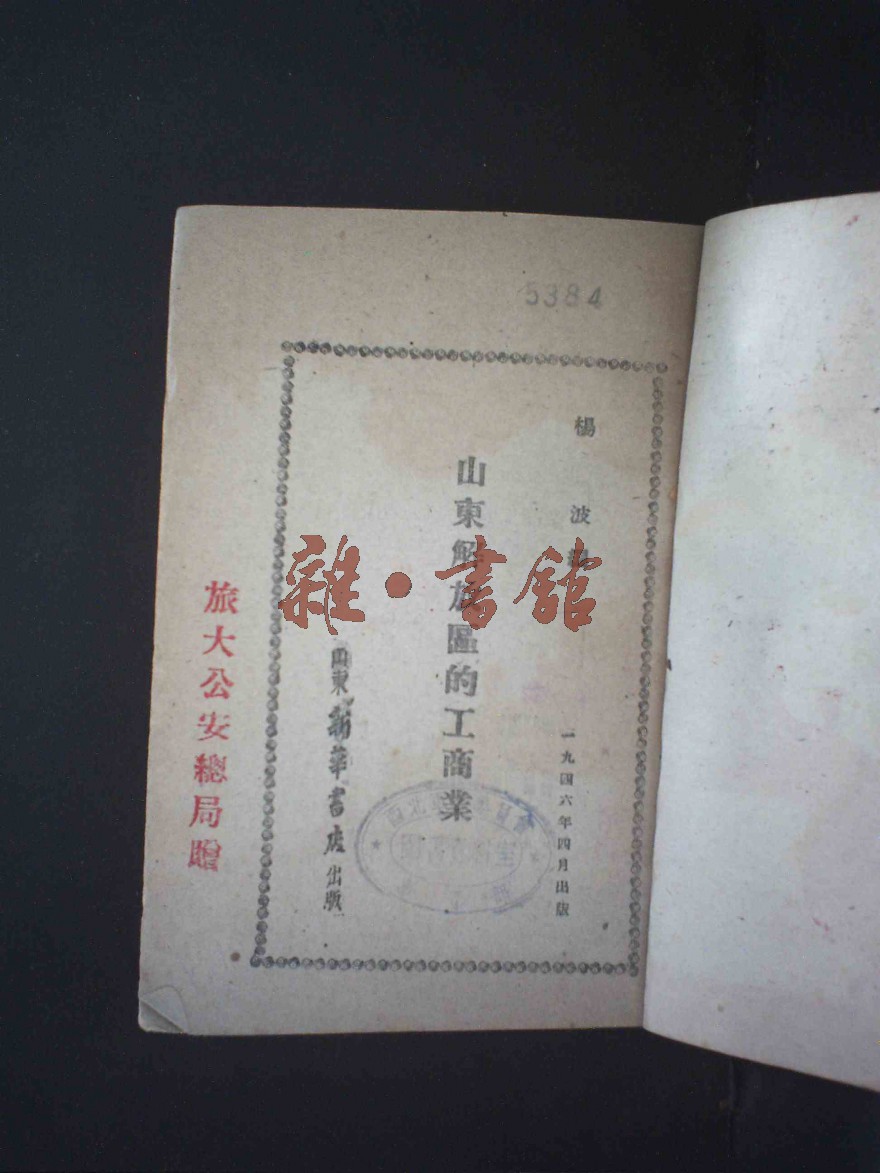 5384
楊波
山東解放區的工商業
一九四六年四月出版
山東新華書店出版
旅大公安總局贈
雜·書館